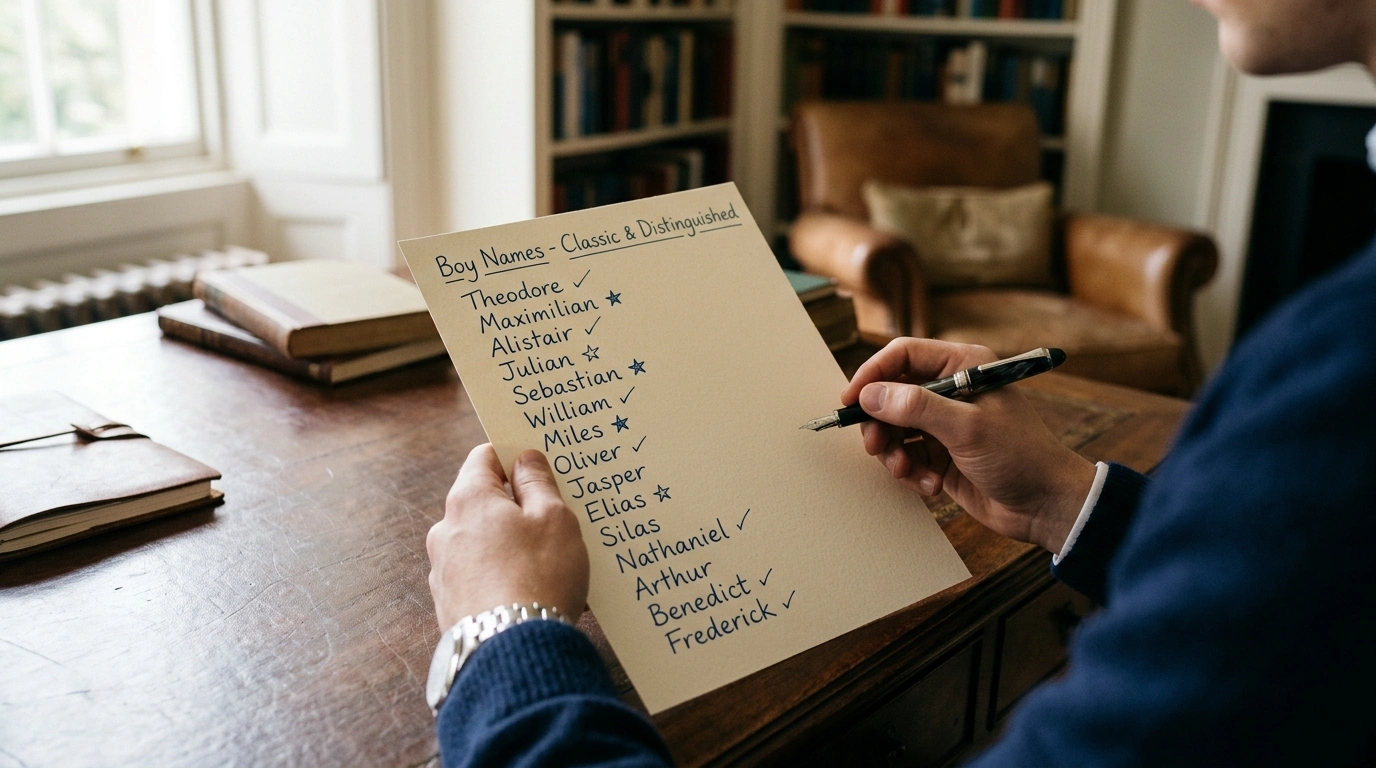 Boy Names - Classic & Distinguished
Theodore ✓
Maximilian ★
Alistair ✓
Julian ☆
Sebastian ★
William ✓
Miles ★
Oliver ✓
Jasper
Elias ☆
Silas
Nathaniel ✓
Arthur
Benedict ✓
Frederick ✓